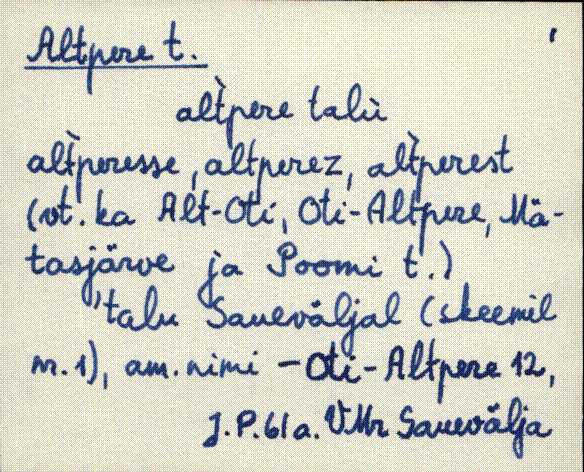 Altpere t.
alt̀pere talù
alt̀peresse, altperez, alt̀perest
(vt. ka Alt-Oti, Oti-Altpere, Mä-
tasjärve ja Poomi t.)
'talu Saueväljal (skeemil
nr. 1), am. nimi - Oti-Altpere 12,
J.P.61a. VMr Sauevälja